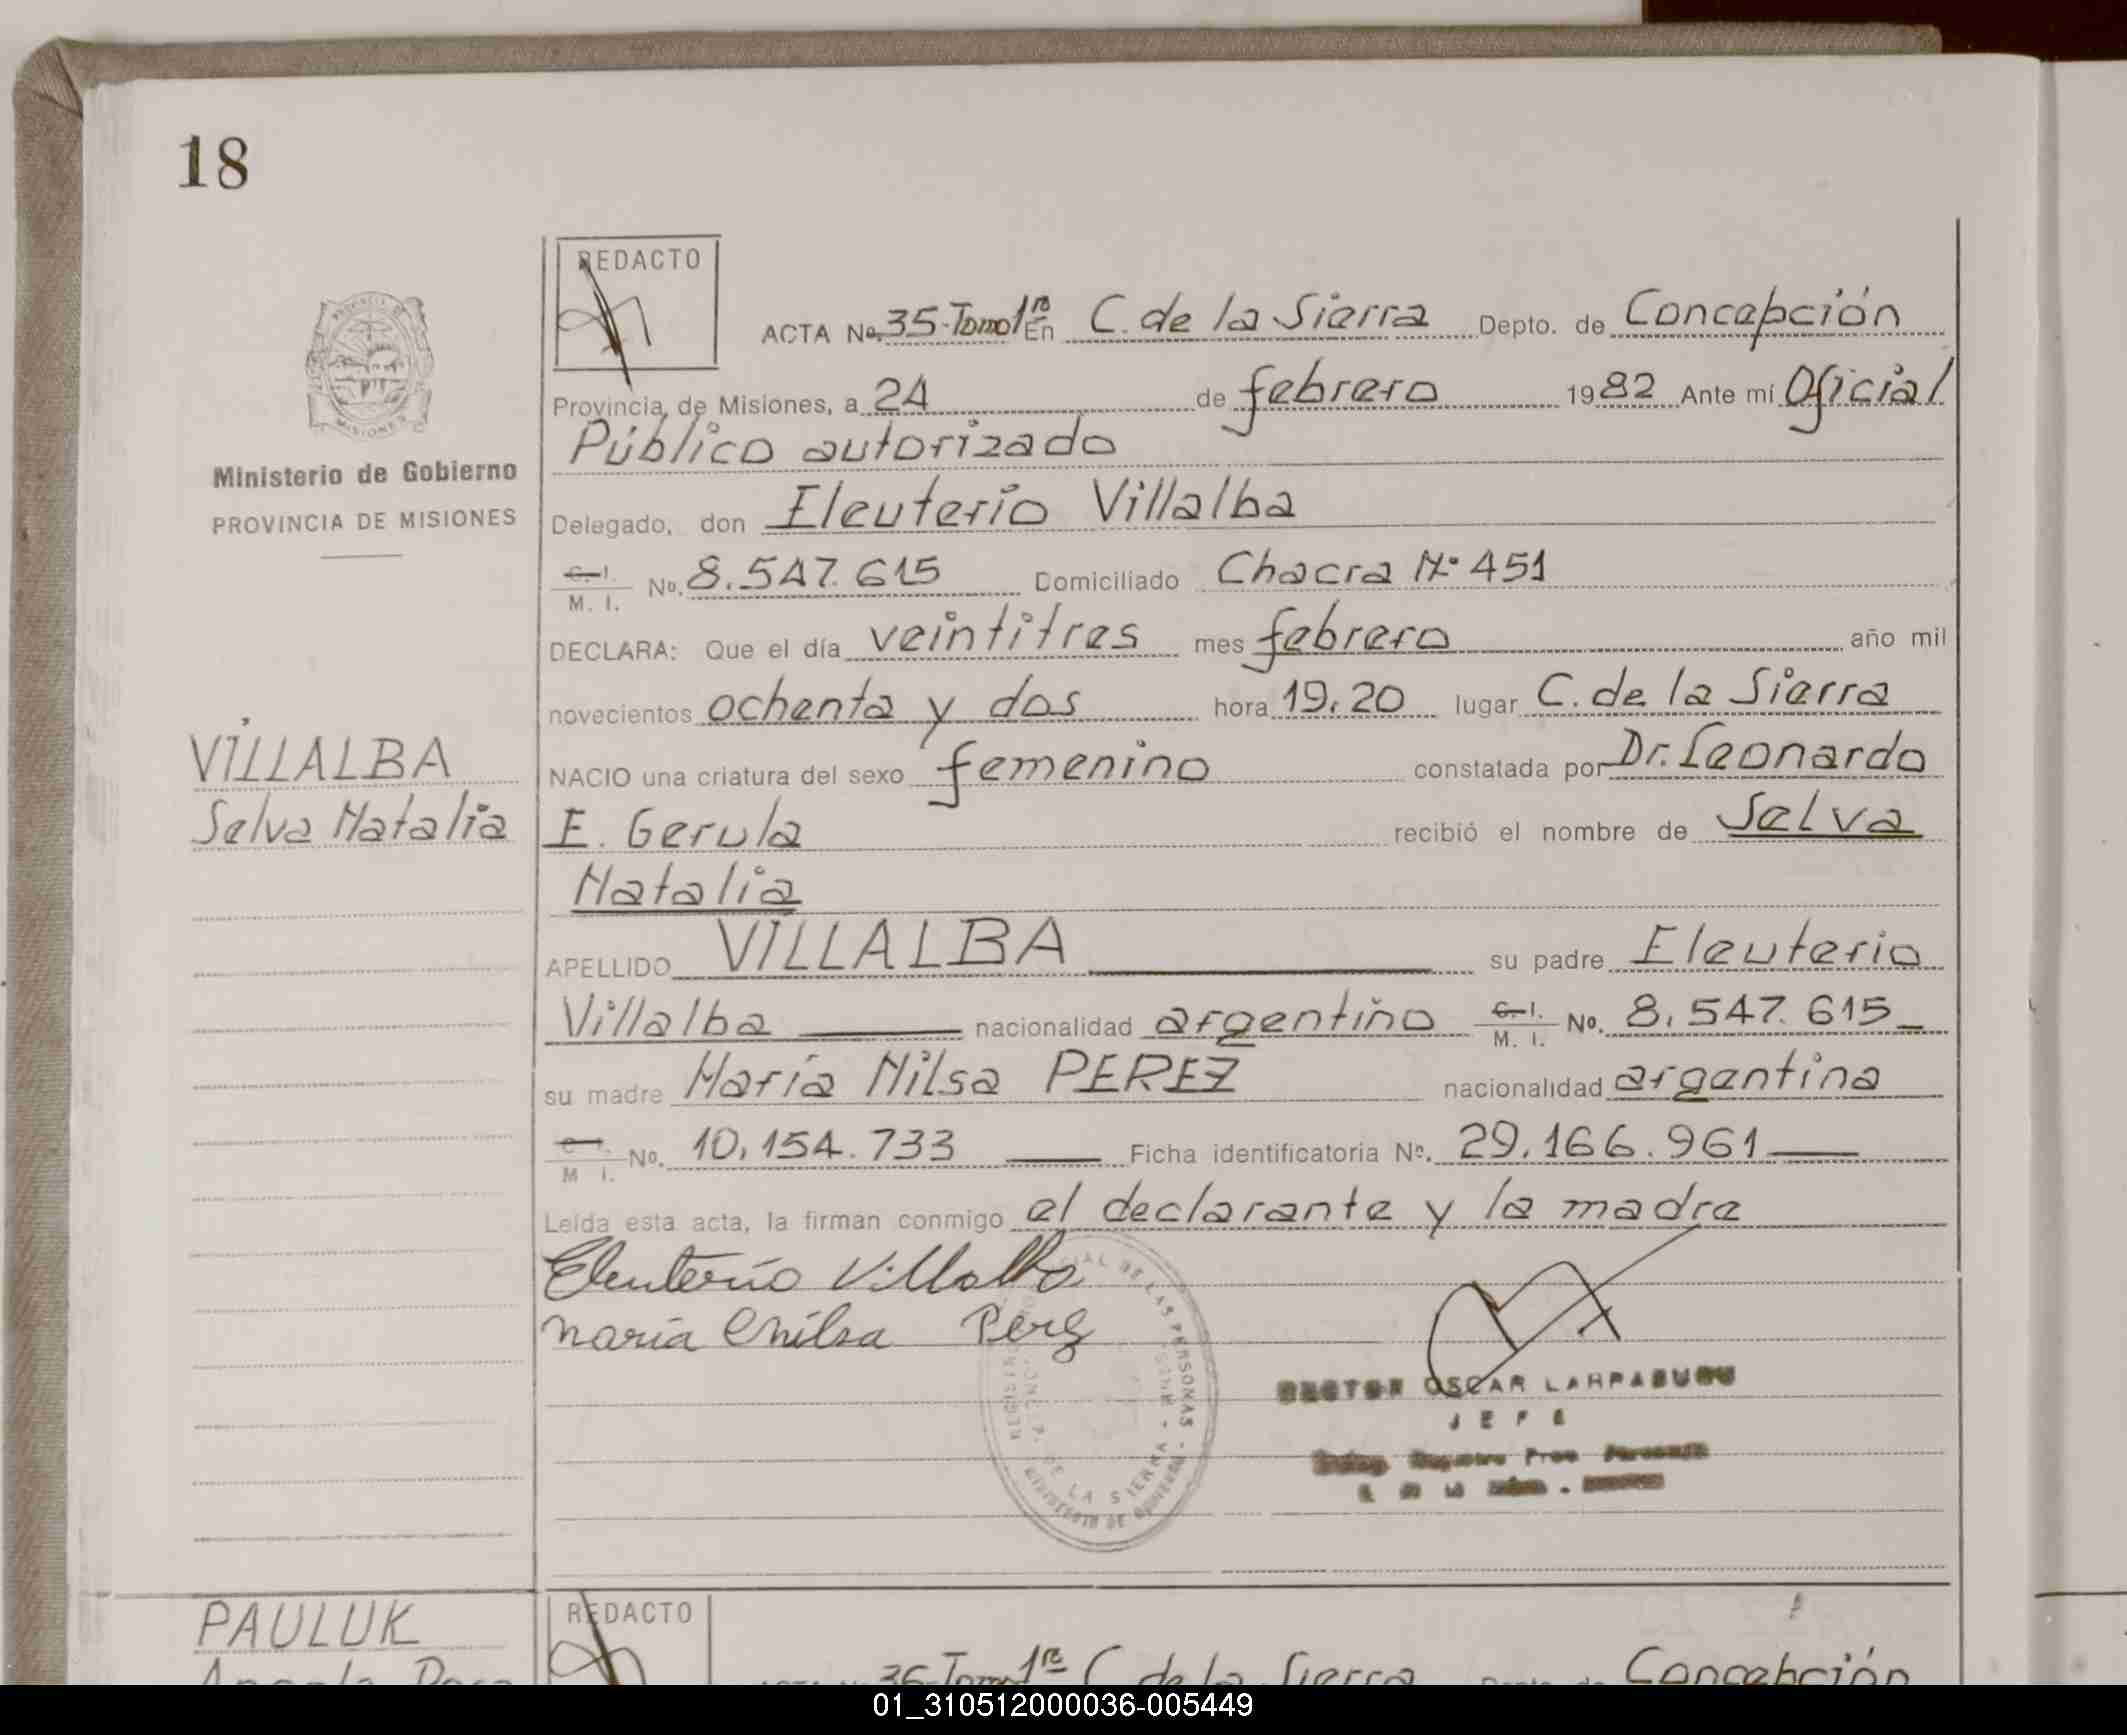 18
REDACTO
ACTA No. 35-Tomo 1ro En C. de la Sierra Depto. de Concepción
Provincia de Misiones, a 24 de febrero 1982 Ante mí Oficial
Público autorizado
Ministerio de Gobierno
PROVINCIA DE MISIONES
Delegado, don Eleuterio Villalba
C. I.
M. I. No. 8.547.615 Domiciliado Chacra Nº 451
DECLARA: Que el día veintitres mes febrero año mil
novecientos ochenta y dos hora 19.20 lugar C. de la Sierra
VILLALBA
Selva Natalia
NACIO una criatura del sexo femenino constatada por Dr. Leonardo
E. Gerula recibió el nombre de Selva
Natalia
APELLIDO VILLALBA su padre Eleuterio
Villalba nacionalidad argentino C. I. M. I. No. 8.547.615
su madre María Nilsa PEREZ nacionalidad argentina
C. I.
M I. No. 10.154.733 Ficha identificatoria Nº. 29.166.961
Leída esta acta, la firman conmigo el declarante y la madre
Eleuterio Villalba
maria Nilsa Perez
OSCAR
JEFE
DE LAS PERSONAS
DE LA SIERRA
MINISTERIO DE GOBIERNO
PAULUK
REDACTO
36-Tomo 1ro C. de la Sierra Concepción
01_310512000036-005449